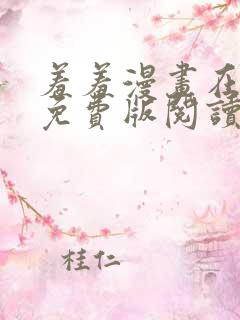 羞羞漫畫在
免費版閱讀
桂仁